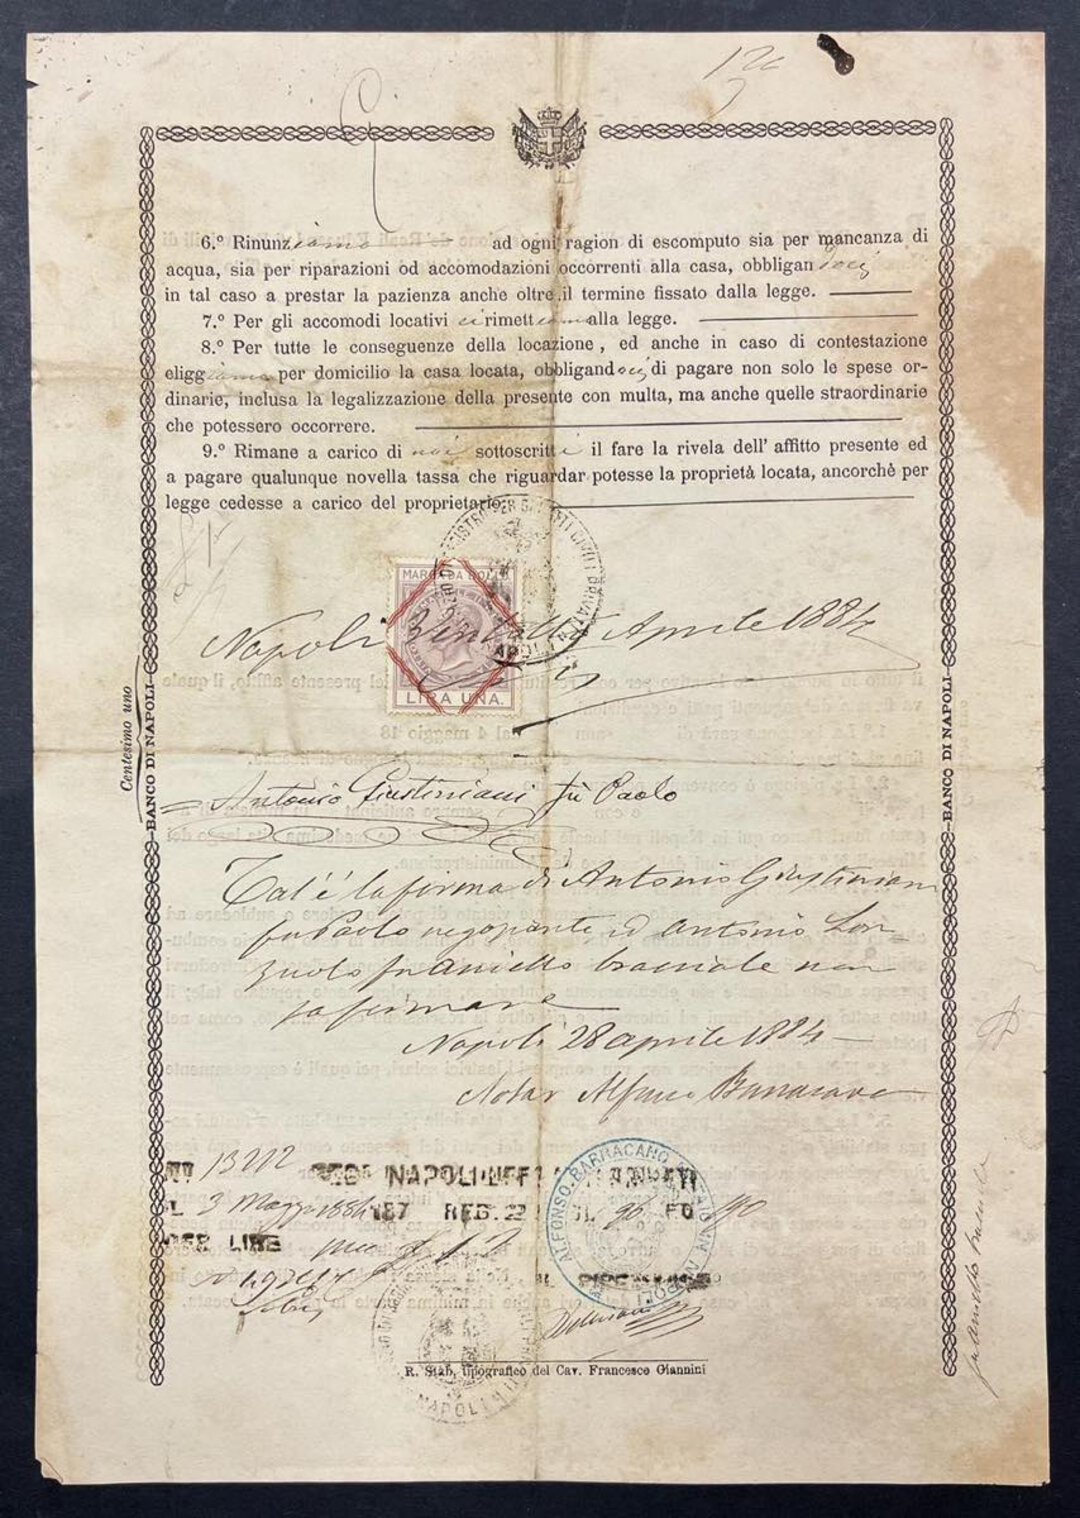 6.º Rinunziamo ad ogni ragion di escomputo sia per mancanza di
acqua, sia per riparazioni od accomodazioni occorrenti alla casa, obbligandoci
in tal caso a prestar la pazienza anche oltre il termine fissato dalla legge.
7.º Per gli accomodi locativi ci rimettiamo alla legge.
8.º Per tutte le conseguenze della locazione, ed anche in caso di contestazione
eliggiamo per domicilio la casa locata, obbligandoci di pagare non solo le spese or-
dinarie, inclusa la legalizzazione della presente con multa, ma anche quelle straordinarie
che potessero occorrere.
9.º Rimane a carico di noi sottoscritti il fare la rivela dell' affitto presente ed
a pagare qualunque novella tassa che riguardar potesse la proprietà locata, ancorchè per
legge cedesse a carico del proprietario.
MARCA DA BOLLO
Napoli Ventotto Aprile 1884
LIRA UNA.
Centesimo uno
BANCO DI NAPOLI
BANCO DI NAPOLI
Antonio Giustiniani fu Paolo
Tal'è la firma di Antonio Giustiniani
fu Paolo negoziante ed Antonio
fu Aniello bracciale non
sa firmare
Napoli 28 aprile 1884
Notar Alfonso Barracano
Nº 13212 NAPOLI
IL 3 Maggio 1884 187 REG. 2 VOL. 96 FO 190
PER LIRE
ALFONSO BARRACANO NOTAIO IN NAPOLI
R. Stab. tipografico del Cav. Francesco Giannini
NAPOLI